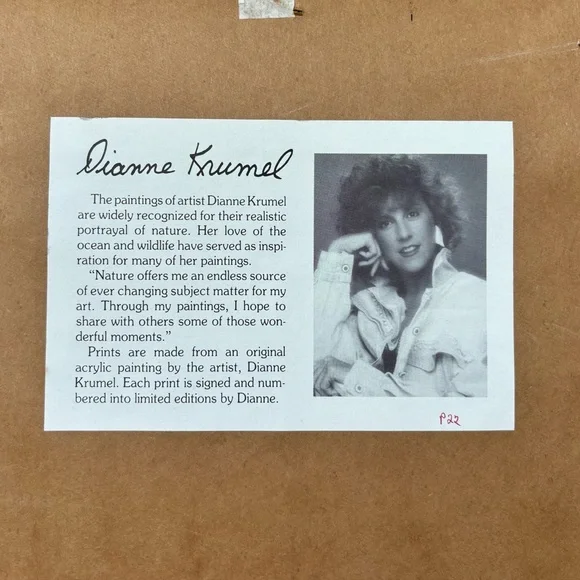 Dianne Krumel
The paintings of artist Dianne Krumel
are widely recognized for their realistic
portrayal of nature. Her love of the
ocean and wildlife have served as inspi-
ration for many of her paintings.
“Nature offers me an endless source
of ever changing subject matter for my
art. Through my paintings, I hope to
share with others some of those won-
derful moments.”
Prints are made from an original
acrylic painting by the artist, Dianne
Krumel. Each print is signed and num-
bered into limited editions by Dianne.
P22